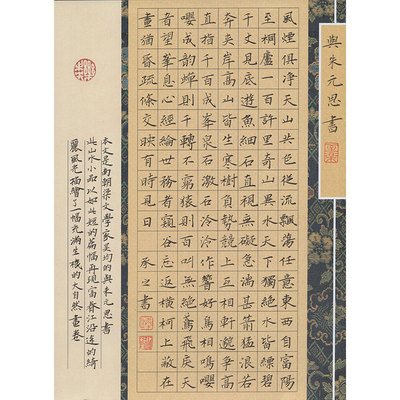 與朱元思書
風煙俱淨天山共色從流飄蕩任意東西自富陽
至桐廬一百許里奇山異水天下獨絕水皆縹碧
千丈見底遊魚細石直視無礙急湍甚箭猛浪若
奔夾岸高山皆生寒樹負勢競上互相軒邈爭高
直指千百成峯泉石激石泠泠作響好鳥相鳴嚶
嚶成韻蟬則千轉不窮猿則百叫無絕鳶飛戾天
者望峯息心經綸世務者窺谷忘返橫柯上蔽在
晝猶昏疏條交映有時見日 承之書
本文是南朝梁文學家吳均的與朱元思書
此山水小品以如此短的篇幅再現富春江沿途的綺
麗風光描繪了一幅充滿生機的大自然畫卷